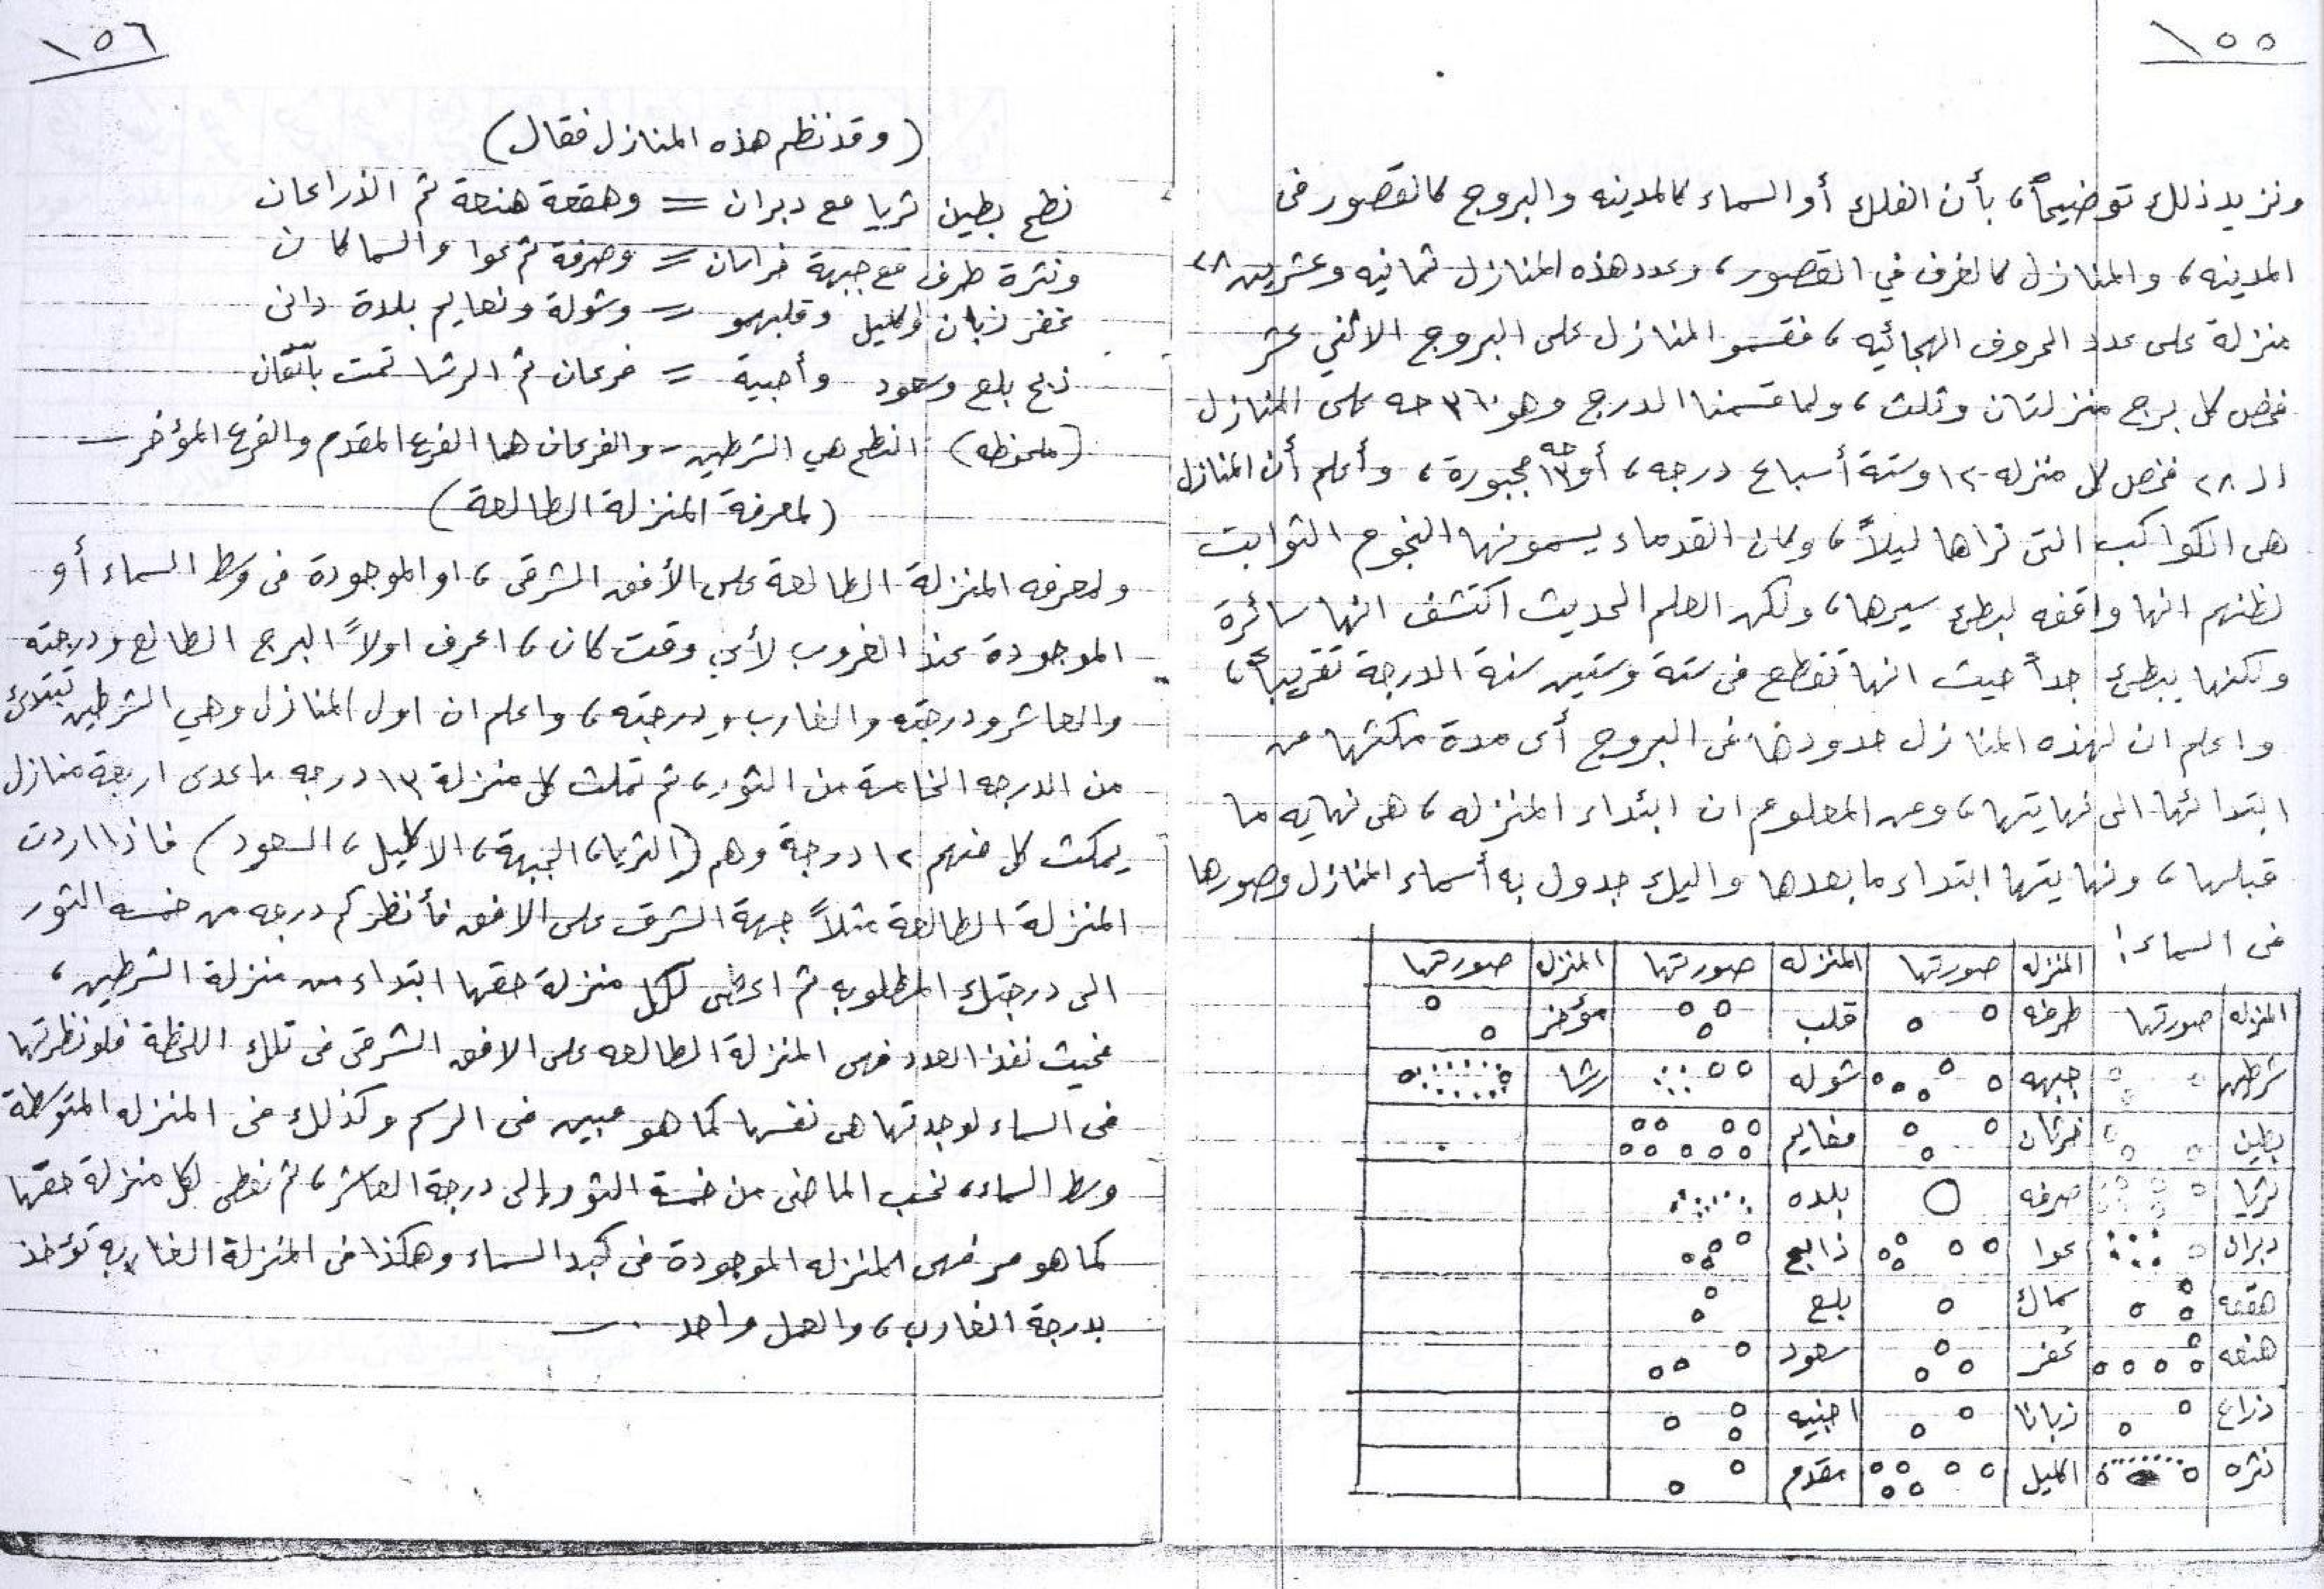 ١٥٥
ونزيد ذلك توضيحاً، بأن الفلك أو السماء كالمدينه والبروج كالقصور فى
المدينه، والمنازل كالغرف في القصور، وعدد هذه المنازل ثمانيه وعشرين ٢٨
منزلة على عدد الحروف الهجائيه، فقسمو المنازل على البروج الاثني عشر
فخص كل برج منزلتان وثلث، ولما قسمنا الدرج وهو ٣٦٠ حه على المنازل
الـ ٢٨ فخص كل منزله ١٢ وستة أسباع درجه، أو ١٣ حه مجبورة، وأعلم أن المنازل
هى الكواكب التى نراها ليلاً، وكان القدماء يسمونها النجوم الثوابت
لظنهم انها واقفه لبطئ سيرها، ولكن العلم الحديث اكتشف انها سائرة
ولكنها ببطئ جداً حيث انها تقطع فى ستة وستين سنة الدرجة تقريباً،
واعلم ان لهذه المنازل حدودها فى البروج أى مدة مكثها من
ابتدائها الى نهايتها، ومن المعلوم ان ابتداء المنزله، هى نهايه ما
قبلها، ونهايتها ابتداء ما بعدها واليك جدول به أسماء المنازل وصورها
فى السماء:
المنزله صورتها المنزله صورتها المنزله صورتها
المنزله صورتها طرفه قلب مؤخر
شرطين جبهه شوله رشا
بطين خرثان مغايم
ثريا صرفه بلده
دبران عوا ذابح
هقعه سماك بلع
هنعه غفر سعود
ذراع زبانا اخبيه
نثره اكليل مقدم
١٥٦
(وقد نظم هذه المنازل فقال)
نطح بطين ثريا مع دبران = وهقعة هنعة ثم الذراعان
ونثرة طرف مع جبهة خراسان = وصرفة ثم عوا والسماكان
غفر زبان اكليل وقلبهمو = وشولة ونعايم بلدة دانى
ذبح بلع وسعود وأخبية = فرعان ثم الرشا تمت بأتقان
(ملحوظه) النطح هي الشرطين - والفرعان هما الفرع المقدم والفرع المؤخر -
(لمعرفة المنزلة الطالعة)
ولمعرفه المنزلة الطالعة على الأفق الشرقى، او الموجودة فى وسط السماء أو
الموجودة عند الغروب لأى وقت كان، اعرف اولاً البرج الطالع ودرجته
والعاشر ودرجته والغارب ودرجته، واعلم ان اول المنازل وهي الشرطين تبتدئ
من الدرجه الخامسة من الثور، ثم تمكث كل منزلة ١٣ درجه ماعدى اربعة منازل
يمكث كل منهم ١٢ درجة وهم (الثريا، الجبهة، الاكليل، السعود) فاذا اردت
المنزلة الطالعة مثلاً جهة الشرق على الافق فأنظر كم درجه من خمسه الثور
الى درجتك المطلوبه ثم اعطى لكل منزلة حقها ابتداء من منزلة الشرطين،
فحيث نفذ العدد فهى المنزلة الطالعه على الافق الشرقى فى تلك اللحظة فلو نظرتها
فى السماء لوجدتها هى نفسها كما هو مبين فى الرسم وكذلك فى المنزله المتوسطة
وسط السماء، نحسب الماضى من خمسة الثور الى درجة العاشر، ثم نعطى لكل منزلة حقها
كما هو مر فهى المنزله الموجودة فى كبد السماء وهكذا فى المنزلة الغاربه تؤخذ
بدرجة الغارب، والعمل واحد .-